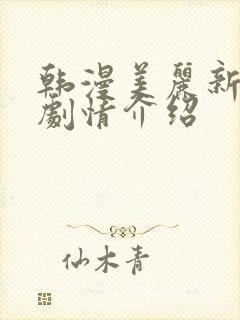 韩漫美麗新
劇情介绍
仙木青